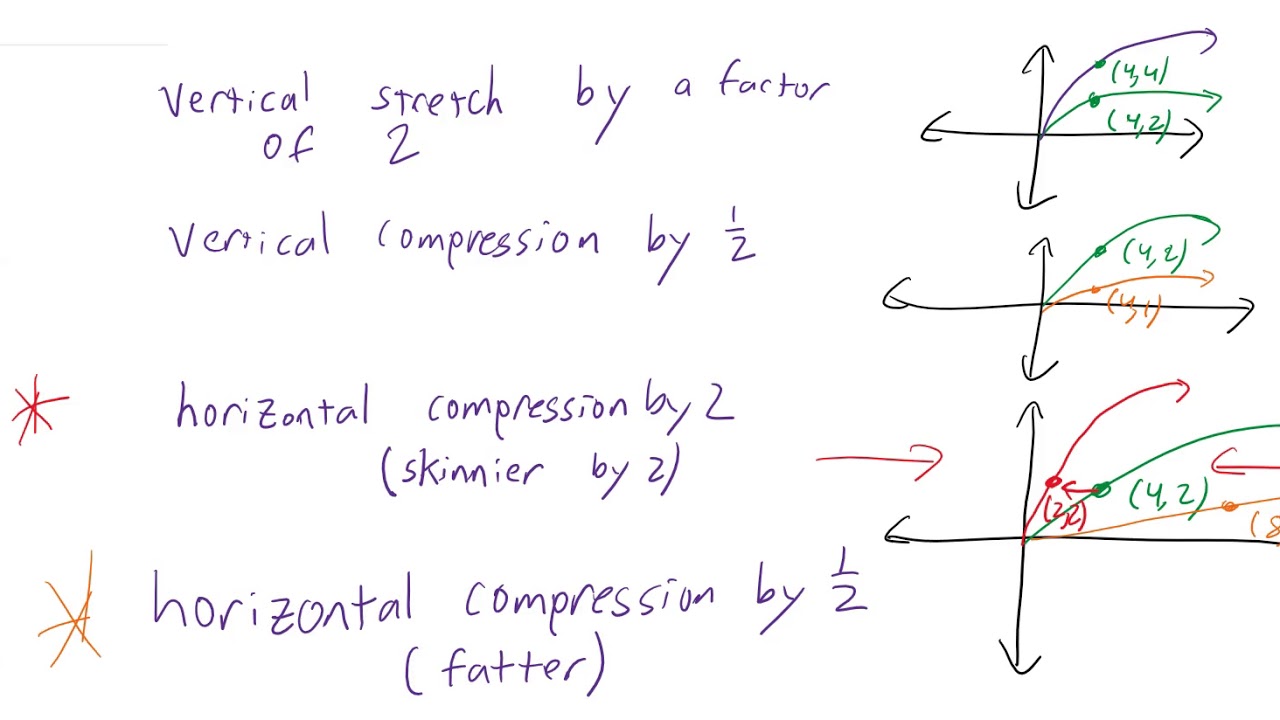 vertical stretch by a factor
of 2
(4,4)
(4,2)
vertical compression by 1/2
(4,2)
(4,1)
horizontal compression by 2
(skinnier by 2)
(4,2)
(2,2)
(8
horizontal compression by 1/2
(fatter)